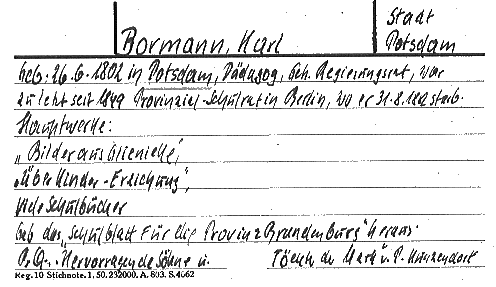 Stadt
Bormann, Karl
Potsdam
geb. 26.6.1802 in Potsdam, Pädagog, Geh. Regierungsrat, war
zuletzt seit 1849 Provinzial-Schulrat in Berlin, wo er 31.8.1882 starb.
Hauptwerke:
"Bilder aus
"Über Kinder-Erziehung",
viele Schulbücher
gab das "Schulblatt für die Provinz Brandenburg" heraus.
Hervorragende Söhne u. Töchter der Mark v. P. Kunzendorf
Reg. 10 Stichnote. 1, 50. 232000. A. 803. S. 4662